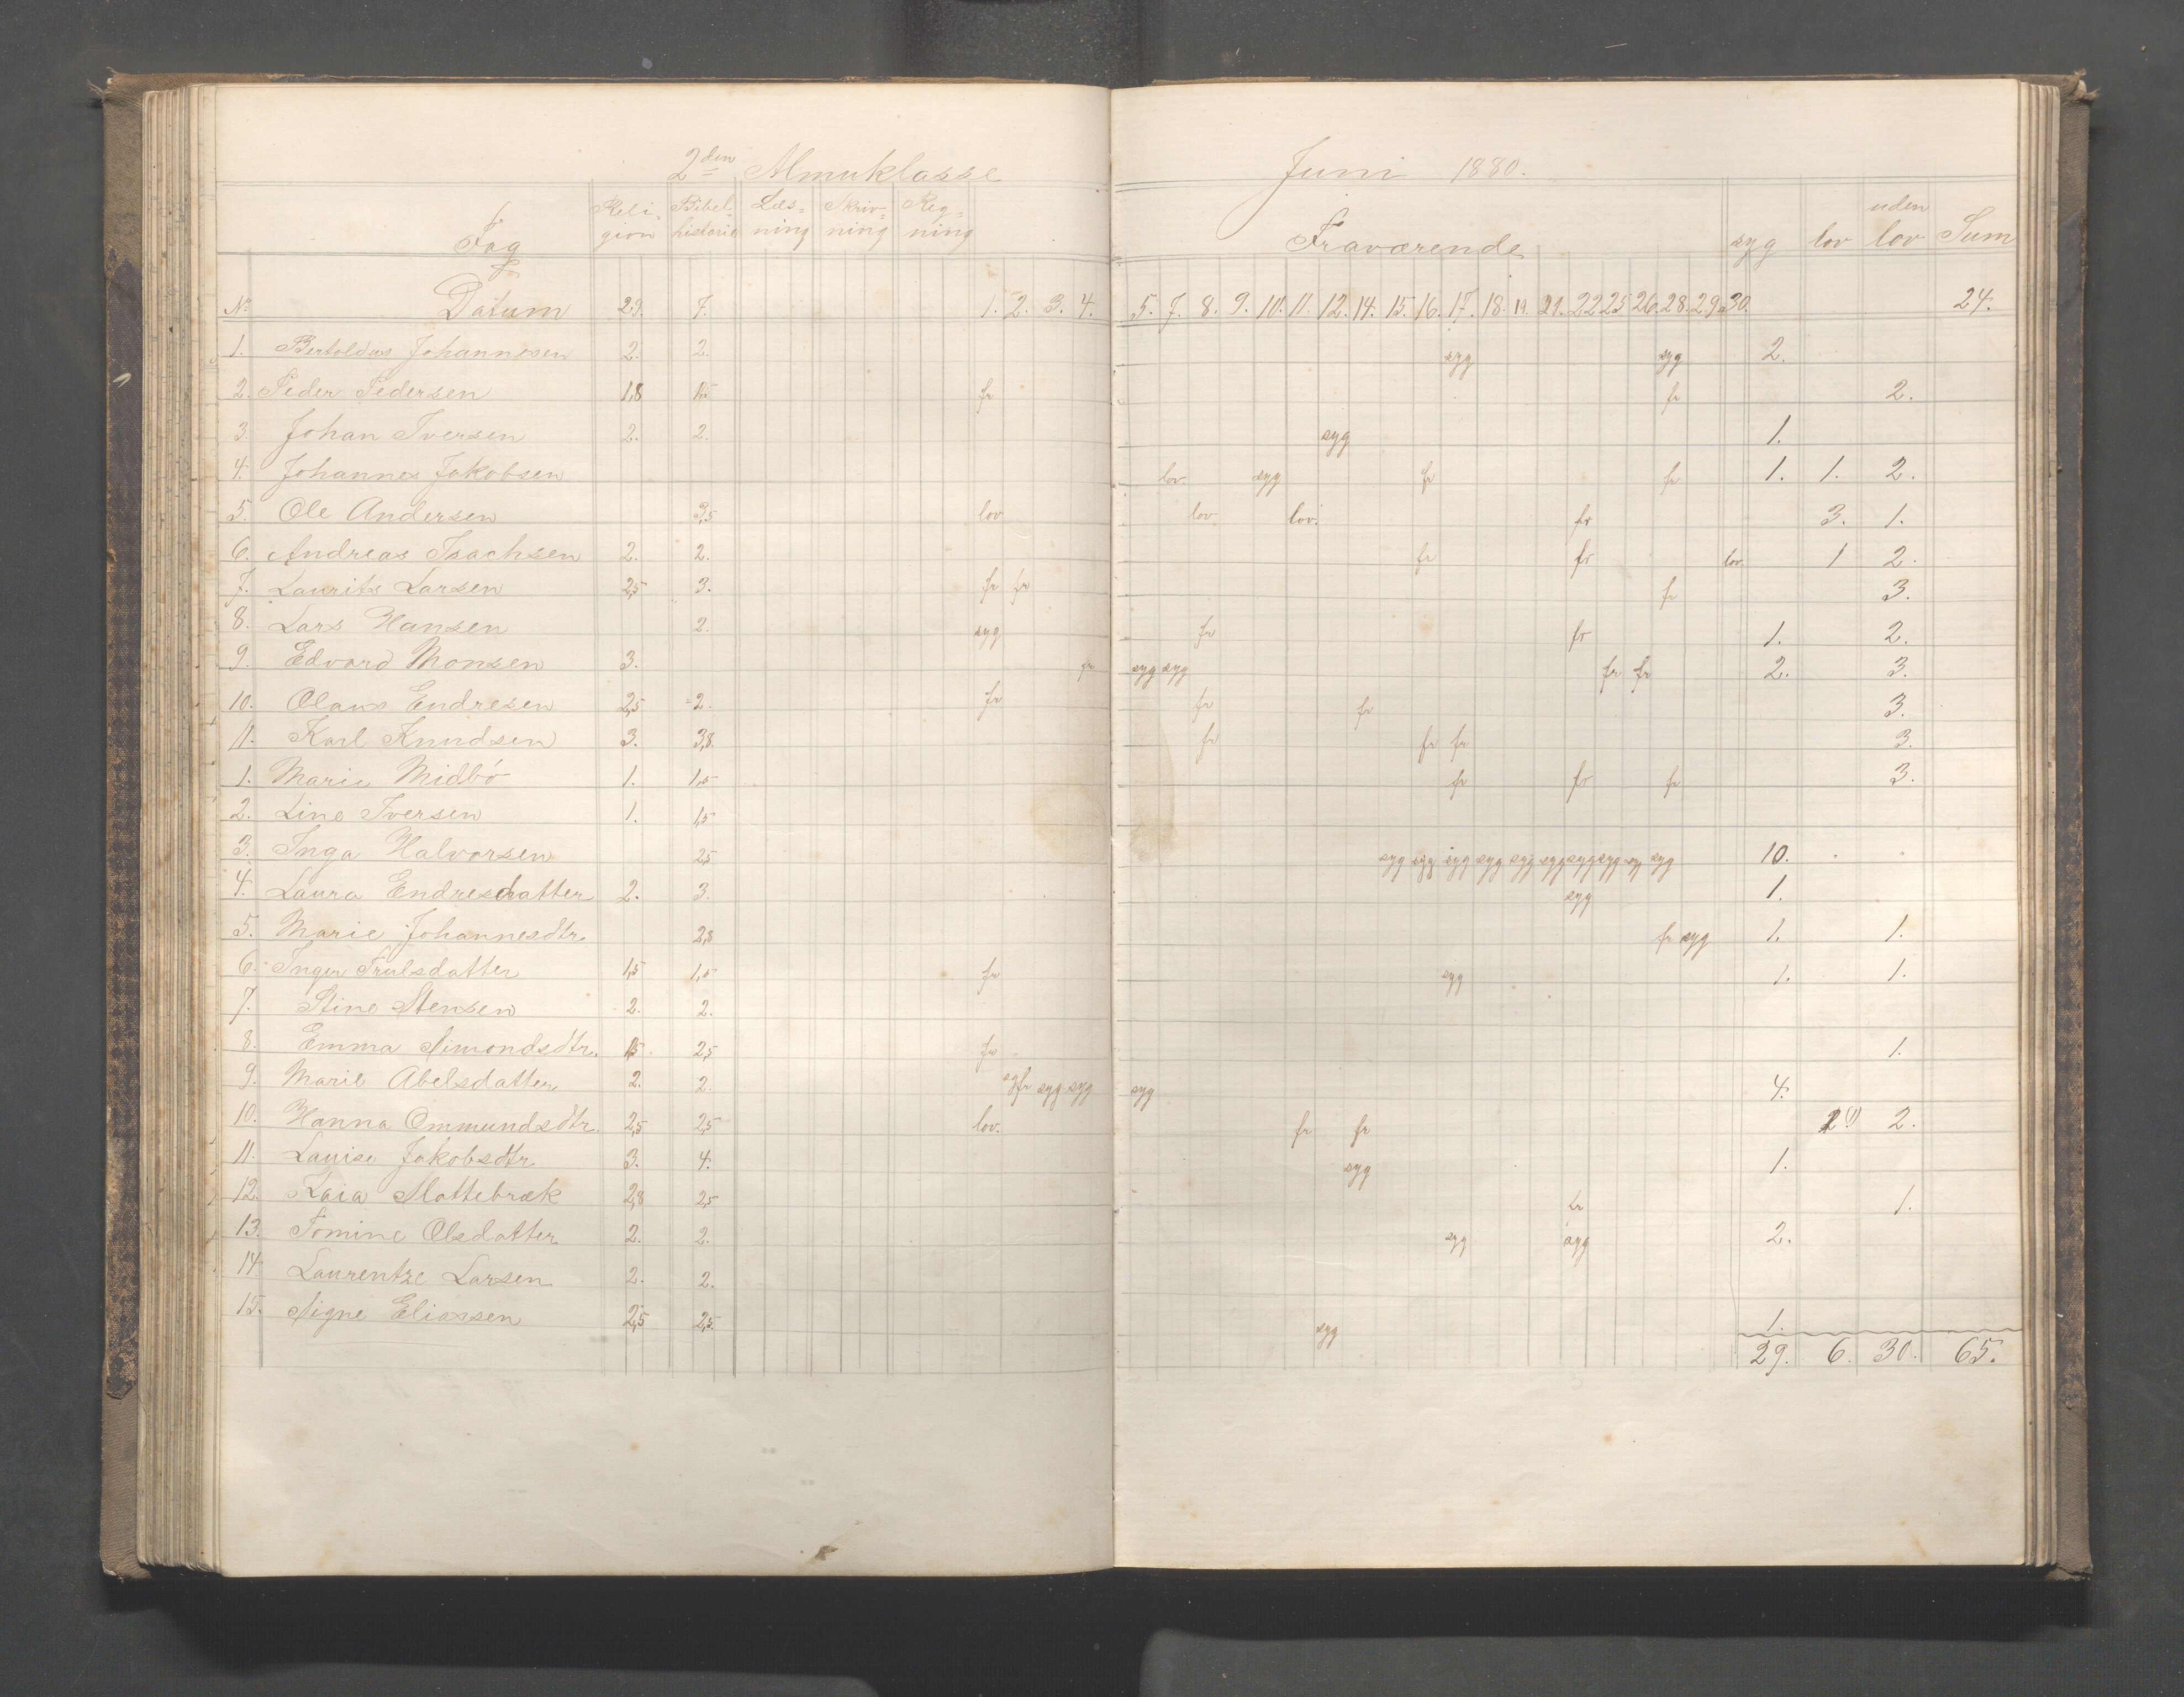 2den Almuklasse Juni 1880.
Fag Reli-gion Bibel-historie Læs-ning Skriv-ning Reg-ning Fraværende syg lov uden lov Sum
No Datum 29. 7. 1. 2. 3. 4. 5. 7. 8. 9. 10. 11. 12. 14. 15. 16. 17. 18. 19. 21. 22 25 26. 28. 29. 30. 24.
1. Bertoldus Johannesen 2. 2. syg syg 2.
2. Peder Pedersen 1,8 1,5 fr fr 2.
3. Johan Iversen 2. 2. syg 1.
4. Johannes Jakobsen lov syg fr fr 1. 1. 2.
5. Ole Andersen 3,5 lov lov. lov. fr 3. 1.
6. Andreas Isachsen 2. 2. fr fr lov. 1 2.
7. Laurits Larsen 2,5 3. fr fr fr 3.
8. Lars Hansen 2. syg fr fr 1. 2.
9. Edvard Monsen 3. fr syg syg fr fr 2. 3.
10. Olaus Endresen 2,5 2. fr fr fr 3.
11. Karl Knudsen 3. 3,8. fr fr fr 3.
1. Marie Midbö 1. 1,5 fr fr fr 3.
2. Line Iversen 1. 1,5
3. Inga Halvorsen 2,5 syg syg syg syg syg syg syg syg syg syg 10.
4. Laura Endresdatter 2. 3. syg 1.
5. Marie Johannesdtr. 2,8 fr syg 1. 1.
6. Inger Trulsdatter 1,5 1,5 fr syg 1. 1.
7. Stine Stensen 2. 2.
8. Emma Simondsdtr. 1,5 2,5 fr 1.
9. Marie Abelsdatter 2. 2. syg syg syg 4.
10. Hanna Ommundsdtr. 2,5 2,5 lov. fr fr 2.
11. Lauise Jakobsdtr 3. 4. syg 1.
12. Kaia Slottebræk 2,8 2,5 fr 1.
13. Tomine Olsdatter 2. 2. syg syg 2.
14. Laurentze Larsen 2. 2.
15. Signe Eliassen 2,5 2,5. syg 1.
29. 6. 30. 65.